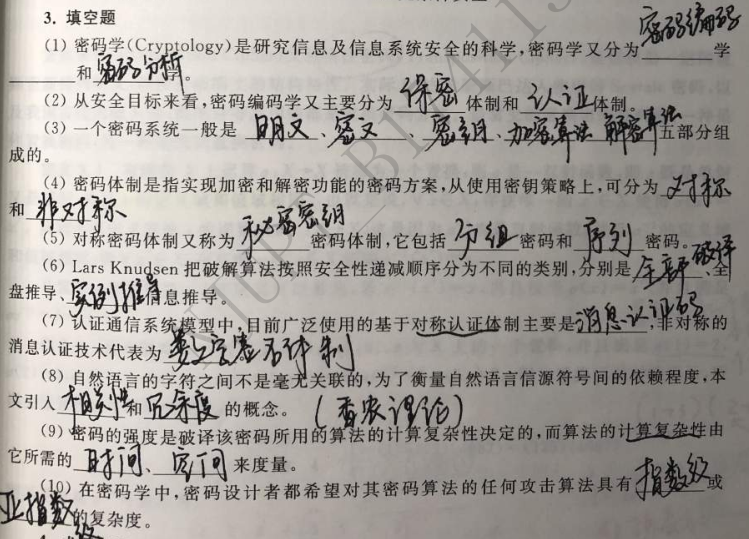 3. 填空题
密码编码
(1) 密码学(Cryptology)是研究信息及信息系统安全的科学,密码学又分为 学
和 密码分析 。
(2) 从安全目标来看,密码编码学又主要分为 保密 体制和 认证 体制。
(3) 一个密码系统一般是 明文 、 密文 、 密钥 、 加密算法 解密算法 五部分组
成的。
(4) 密码体制是指实现加密和解密功能的密码方案,从使用密钥策略上,可分为 对称
和 非对称
(5) 对称密码体制又称为 秘密密钥 密码体制,它包括 分组 密码和 序列 密码。
(6) Lars Knudsen 把破解算法按照安全性递减顺序分为不同的类别,分别是 全部破译 、全
盘推导、 实例推导 息推导。
(7) 认证通信系统模型中,目前广泛使用的基于对称认证体制主要是 消息认证码 ,非对称的
消息认证技术代表为 体制
(8) 自然语言的字符之间不是毫无关联的,为了衡量自然语言信源符号间的依赖程度,本
文引入 相关性 和 冗余度 的概念。 (香农理论)
(9) 密码的强度是破译该密码所用的算法的计算复杂性决定的,而算法的计算复杂性由
它所需的 时间 、 空间 来度量。
(10) 在密码学中,密码设计者都希望对其密码算法的任何攻击算法具有 指数级 或
亚指数 的复杂度。
级